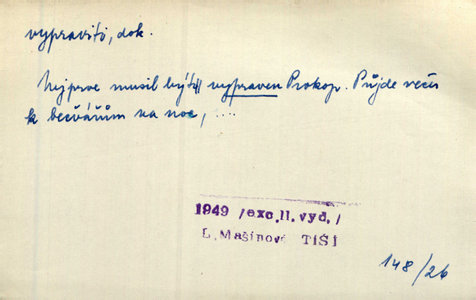 vypraviti, dok.
Nejprve musil být vypraven Prokop. Půjde večer
k bečvářům na noc, ....
1949 /exc.II.vyd./
L.Mašínová TIŠÍ
148/26